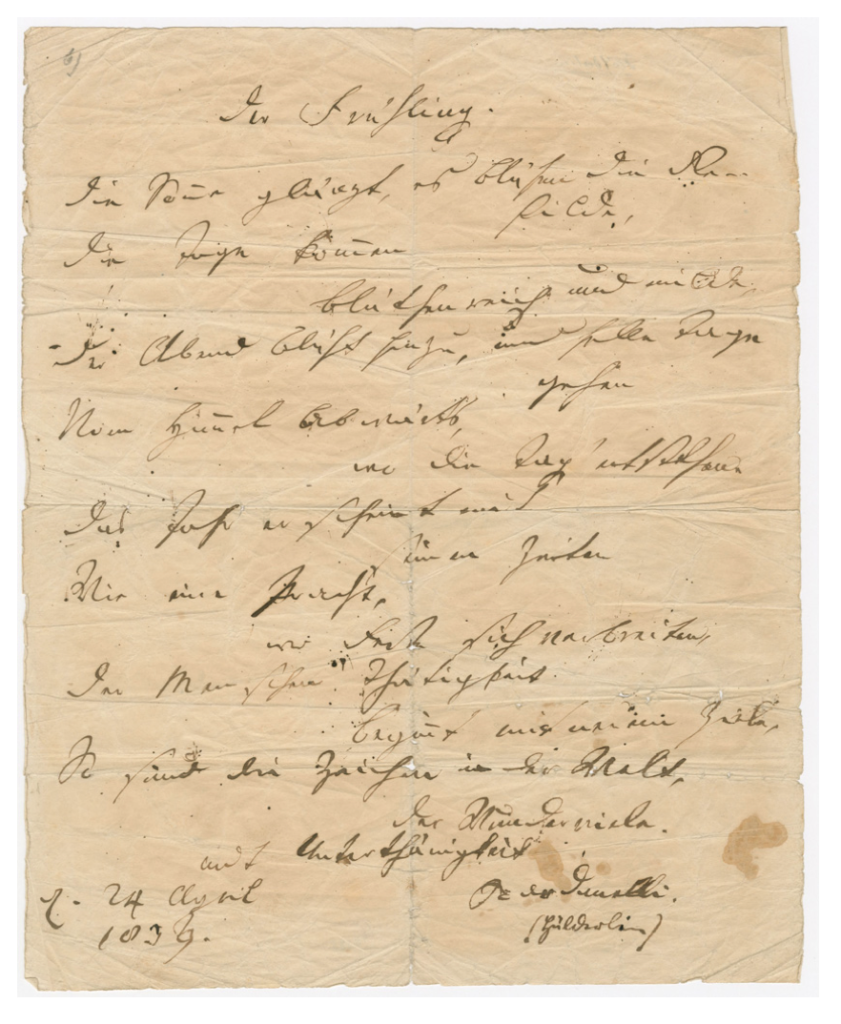 Der Frühling.
Die Soñe glänzt, es blühen die Ge-
filde,
Die Tage kom̄en
blüthenreich und milde,
Der Abend blüht hinzu, und helle Tage
gehen
Vom Him̄el abwärts,
wo die Tag' entstehen.
Das Jahr erscheint mit
seinen Zeiten
Wie eine Pracht,
wo Feste sich verbreiten,
Der Menschen Thätigkeit
begiñt mit neuem Ziele,
So sind die Zeichen in der Welt,
der Wunder viele.
mit Unterthänigkeit
d. 24 April
1839.
Scardanelli.
(Hölderlin)